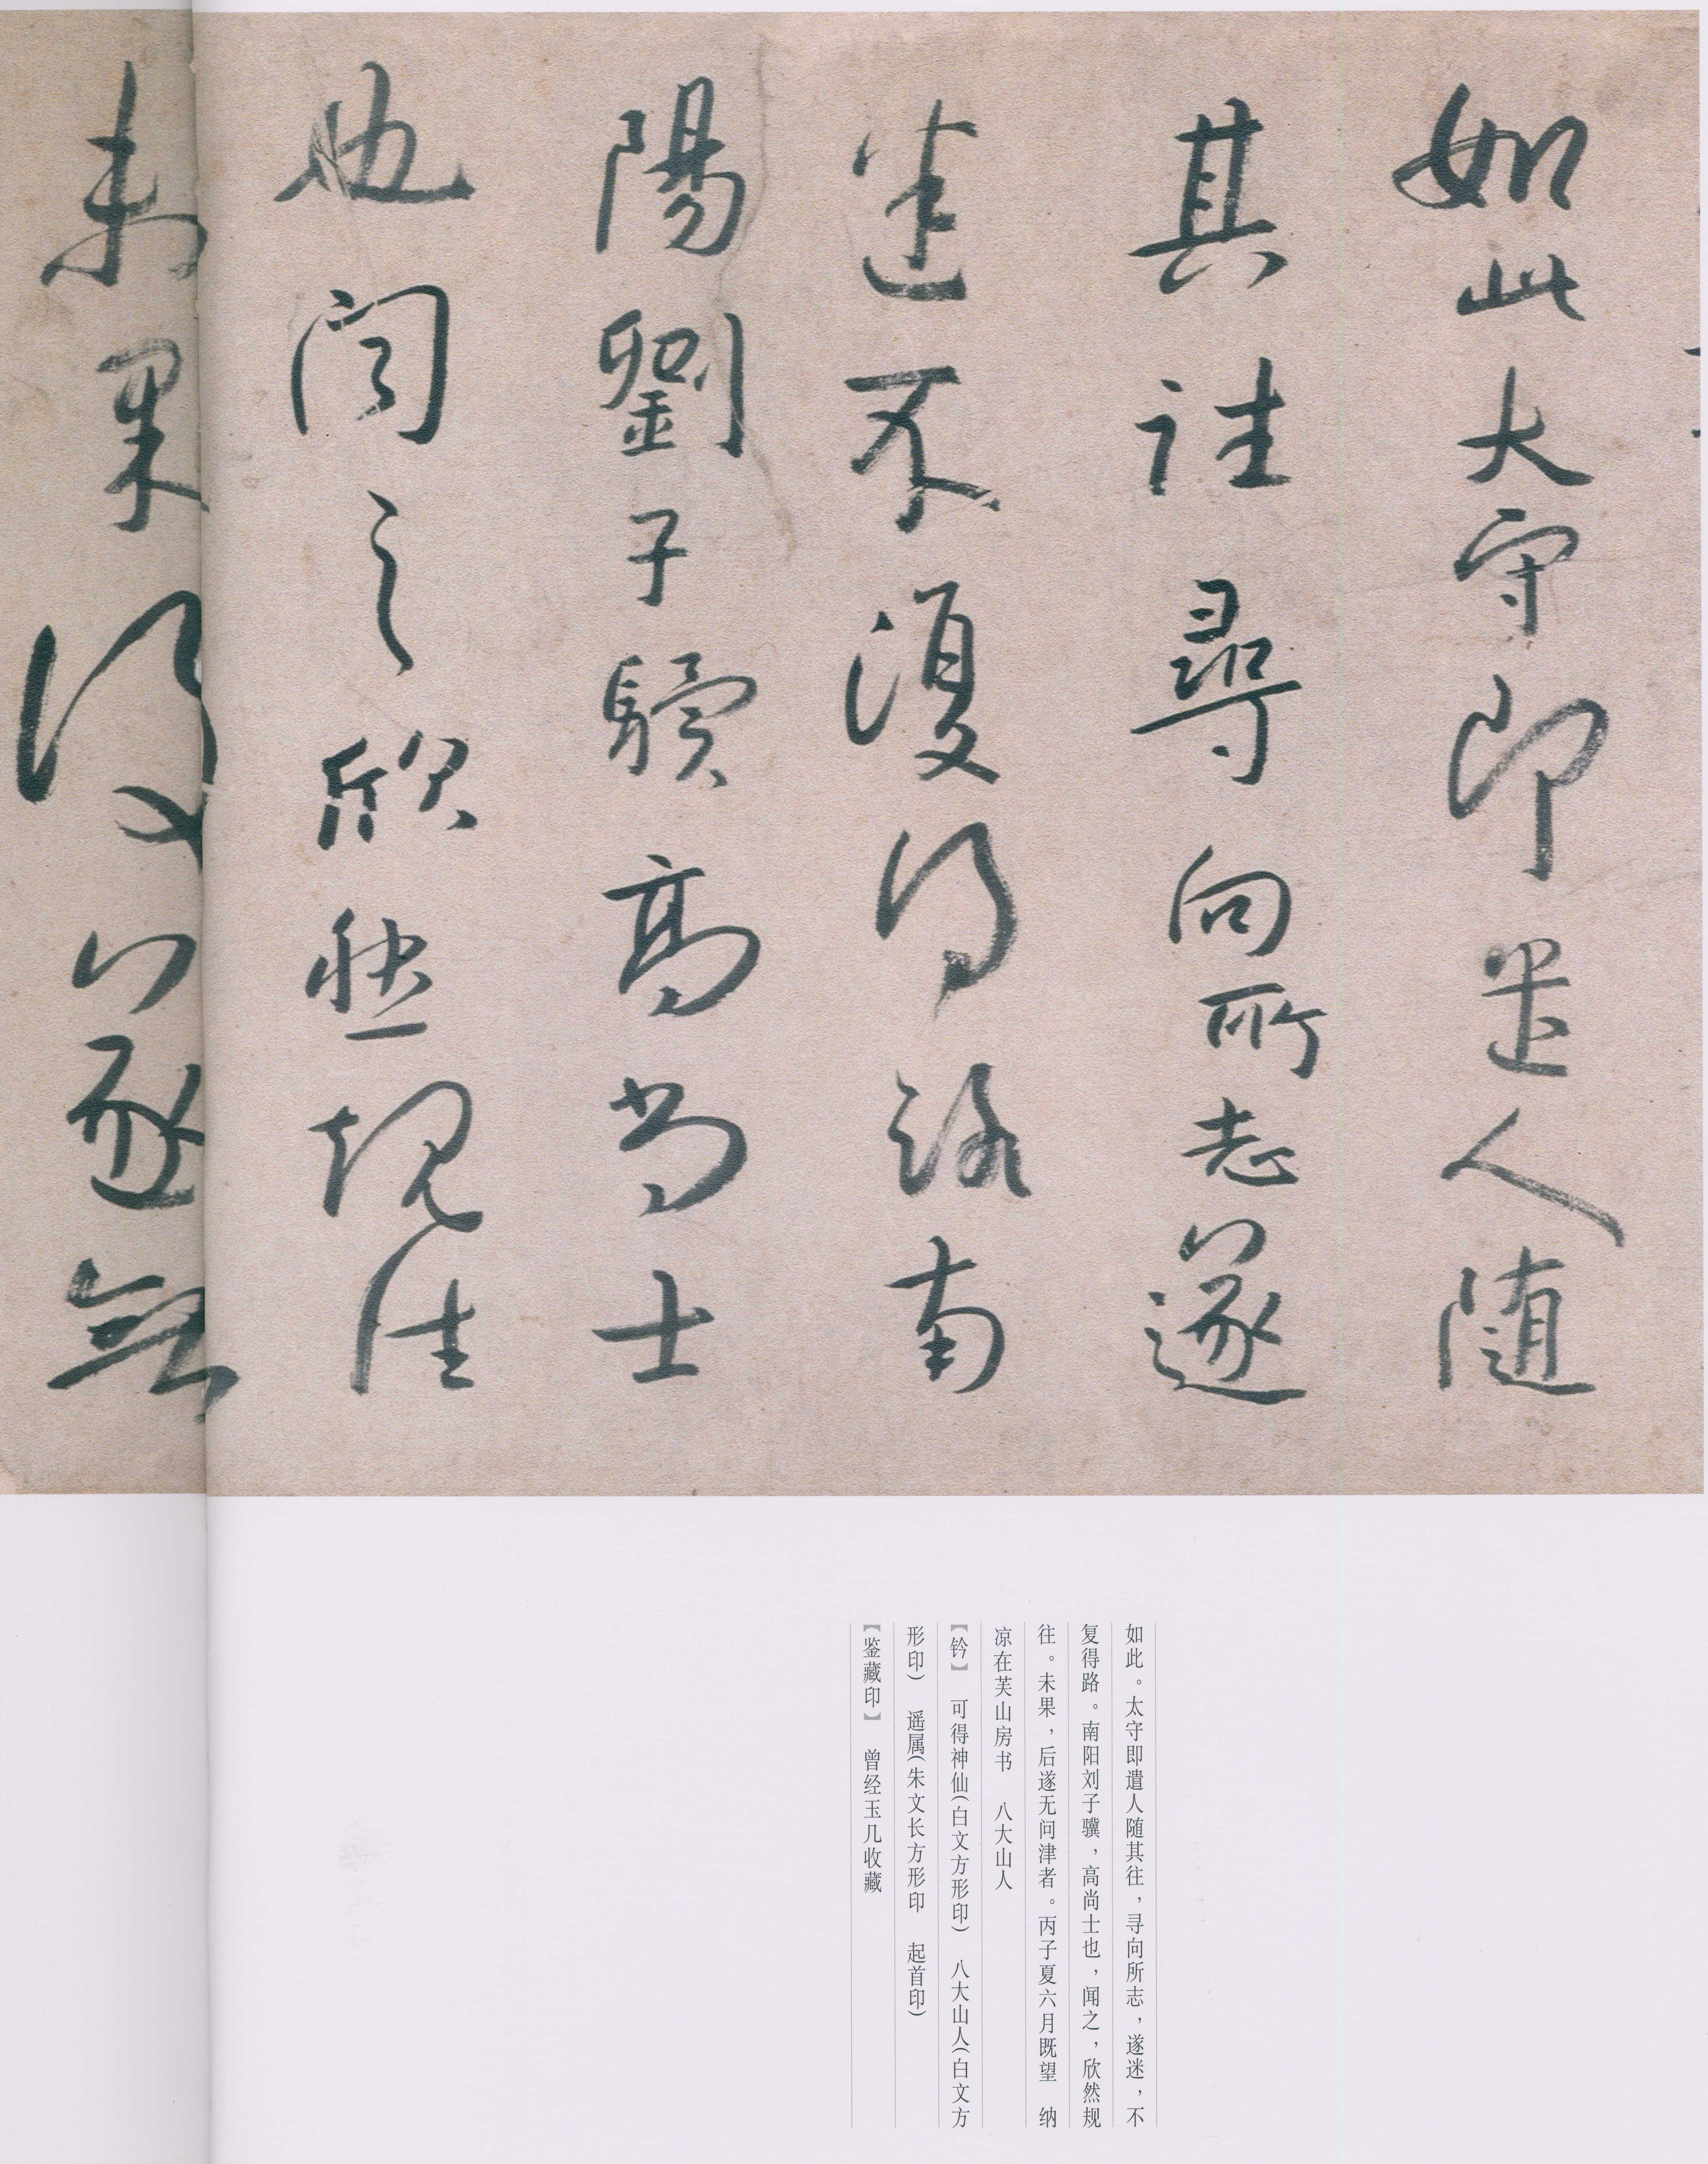 如此太守即遣人随
其往尋向所志遂
迷不復得路南
陽劉子驥高尚士
也聞之欣然規往
未果後遂無
如此。太守即遣人随其往，寻向所志，遂迷，不
复得路。南阳刘子骥，高尚士也，闻之，欣然规
往。未果，后遂无问津者。丙子夏六月既望 纳
凉在芙山房书 八大山人
【钤】 可得神仙(白文方形印) 八大山人(白文方
形印) 遥属(朱文长方形印 起首印)
【鉴藏印】 曾经玉几收藏